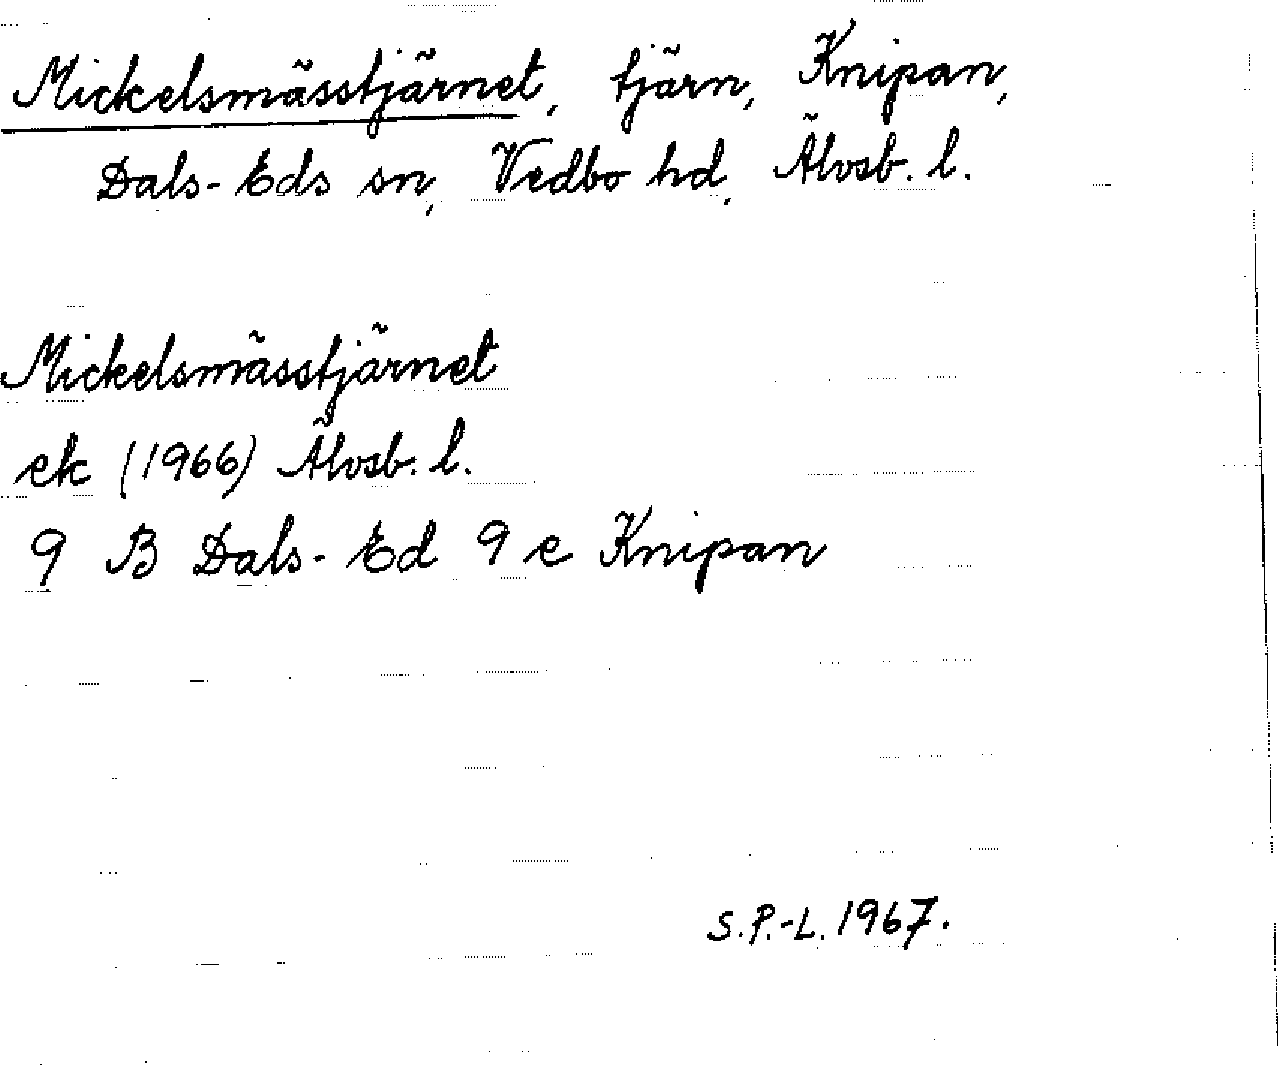 Mickelsmässtjärnet, tjärn, Knipan,
Dals-Eds sn, Vedbo hd, Älvsb. l.
Mickelsmässtjärnet
ek (1966) Älvsb. l.
9 B Dals-Ed 9 e Knipan
S.P.-L. 1967.